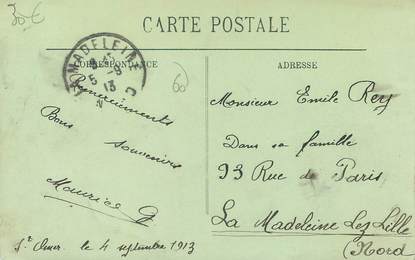 30€
CARTE POSTALE
CORRESPONDANCE
ADRESSE
MADELEINE
5 -9
13
60
Remerciements
Bons souvenirs
Maurice G
St Omer le 4 septembre 1913
Monsieur Emile Rey
Dans sa famille
93 Rue de Paris
La Madeleine Lez Lille
(Nord